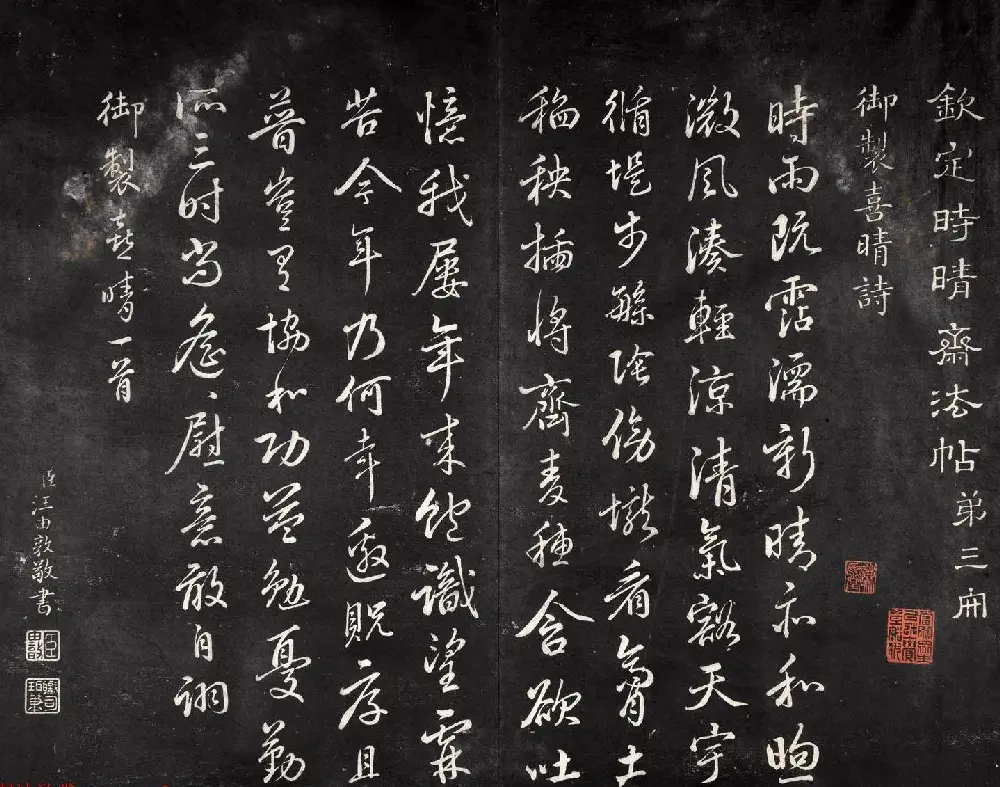 欽定時晴齋法帖第三冊
御製喜晴詩
時雨既霑濡新晴亦和煦
微風湊輕涼清氣豁天宇
循堤步緐陰傍壠看膏土
稻秧插將齊麦穗含欲吐
憶我屢年来飽識望霖
苦今年乃何幸邀貺序且
普豈曰協和功益勉憂勤
所三时尚慰意敢自詡
御製喜晴一首
臣汪由敦敬書